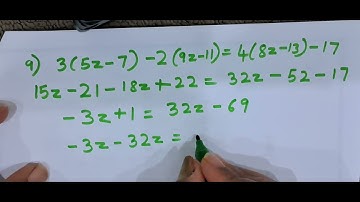 9) 3(5z-7)-2(9z-11)=4(8z-13)-17
15z-21-18z+22=32z-52-17
-3z+1=32z-69
-3z-32z=